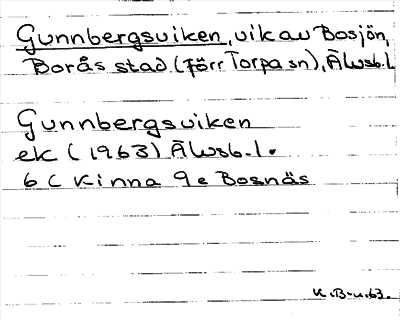 Gunnbergsviken, vik av Bosjön,
Borås stad (förr Torpa sn), Älvsb.l.
Gunnbergsviken
ek (1963) Älvsb.l.
6 C Kinna 9e Bosnäs
K.B-n.63.